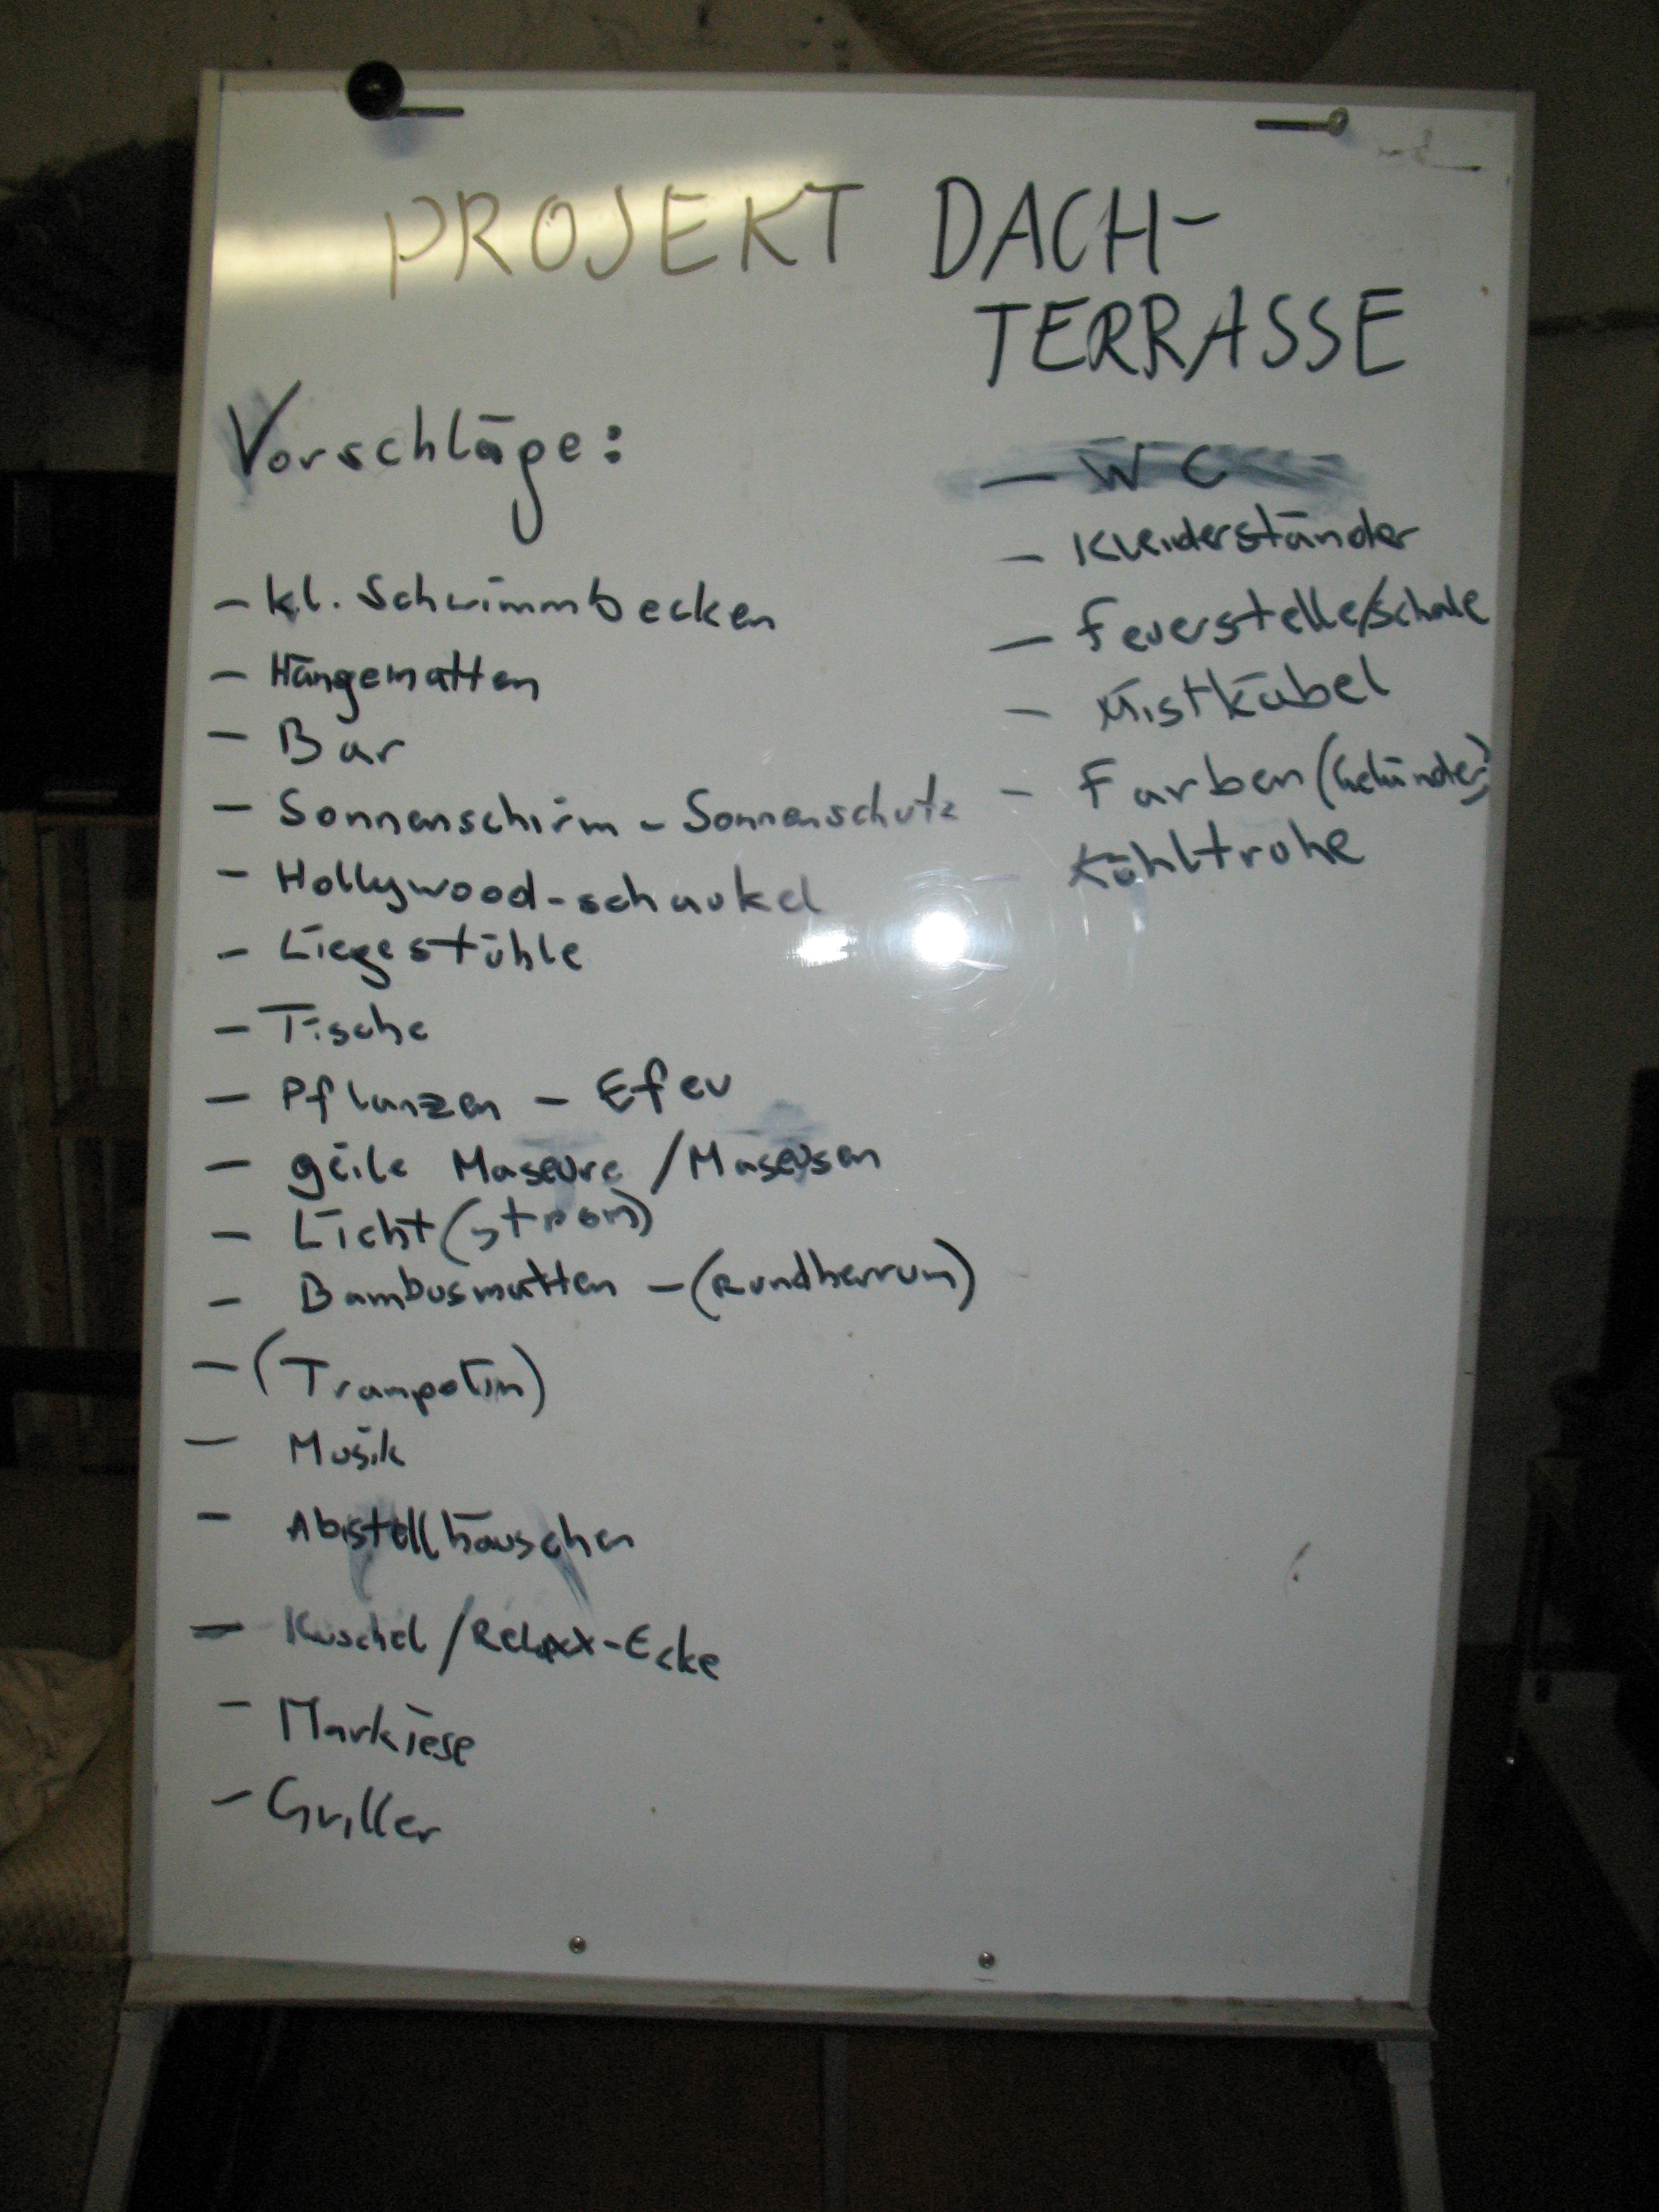 PROJEKT DACH-
TERRASSE
Vorschläge:
- kl. Schwimmbecken
- Hängematten
- Bar
- Sonnenschirm - Sonnenschutz
- Hollywood-schaukel
- Liegestühle
- Tische
- Pflanzen - Efeu
- geile Maseure / Maseusen
- Licht (strom)
- Bambusmatten - (Rundherrum)
- (Trampolin)
- Musik
- Abstellhäuschen
- Kuschel / Relaxx-Ecke
- Markiese
- Griller
- WC
- Kleiderständer
- Feuerstelle/schale
- Mistkübel
- Farben (Geländer)
Kühltruhe